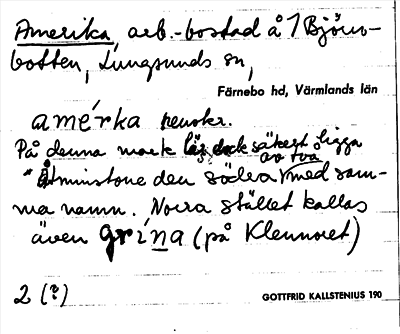 Amerika, arb.-bostad å 1 Björn-
botten, Lungsunds sn,
Färnebo hd, Värmlands län
amérka penokr.
På denna mark lär dock säkert ligga
av två
"Åtminstone den södra med sam-
ma namn. Norra stället kallas
även grína (på Klennoret)
2 (?)
GOTTFRID KALLSTENIUS 190